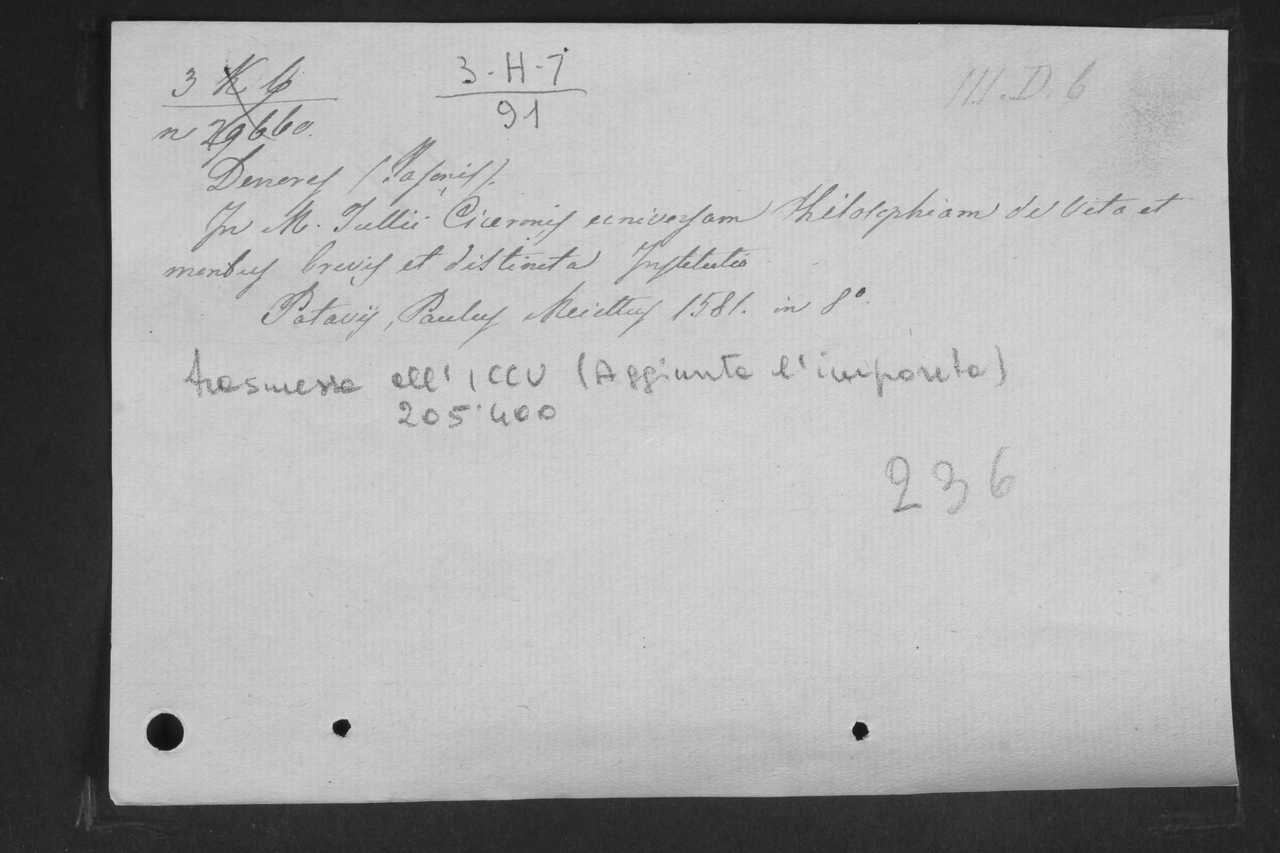 3 K 6
n 29660.
3-H-7
91
III.D.6
Denores (Jasonis).
In M. Tullii Ciceronis universam Philosophiam de Vita et
moribus brevis et distincta Institutio
Patavij, Paulus Meiettus 1581. in 8°.
trasmessa all'ICCU (Aggiunta l'impronta)
205.400
236